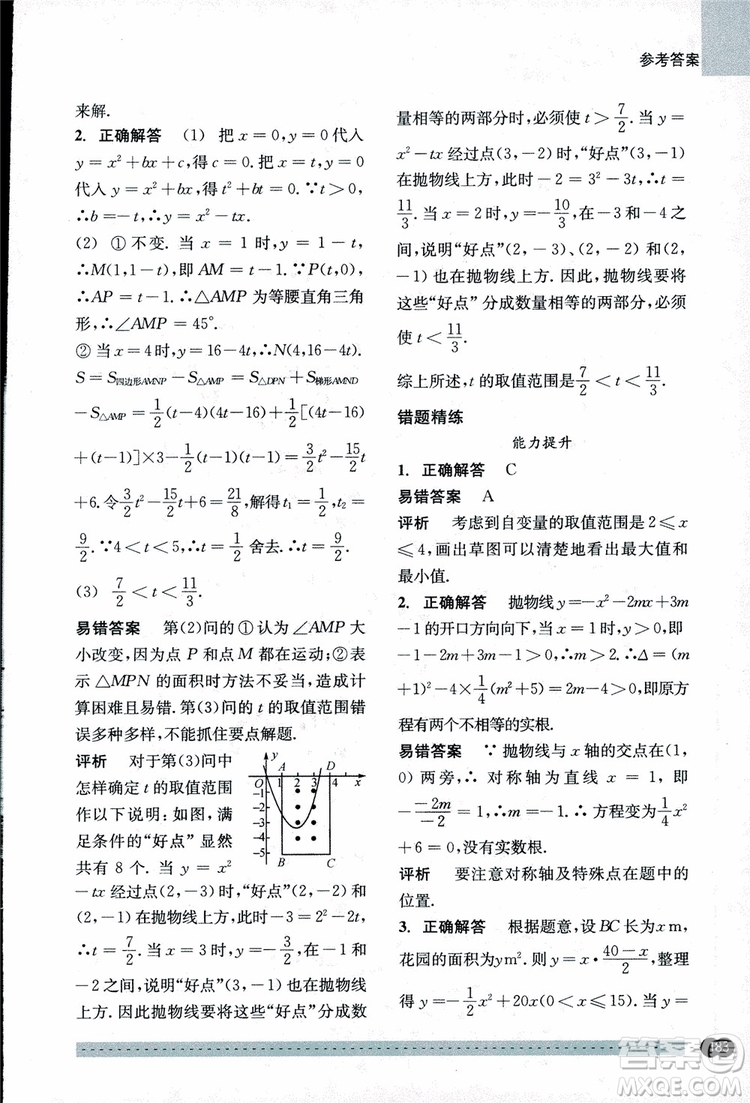 参考答案
来解.
2. 正确解答 (1) 把 x=0,y=0 代入
y=x²+bx+c,得 c=0. 把 x=t,y=0
代入 y=x²+bx,得 t²+bt=0. ∵t>0,
∴b=-t,∴y=x²-tx.
(2) ①不变. 当 x=1 时,y=1-t,
∴M(1,1-t),即 AM=t-1. ∵P(t,0),
∴AP=t-1. ∴△AMP 为等腰直角三角
形,∴∠AMP=45°.
②当 x=4时,y=16-4t,∴N(4,16-4t).
S=S四边形AMNP-S△AMP=S△DPN+S梯形AMND
-S△AMP=1/2(t-4)(4t-16)+1/2[(4t-16)
+(t-1)]×3-1/2(t-1)(t-1)=3/2t²-15/2t
+6. 令3/2t²-15/2t+6=21/8,解得t₁=1/2,t₂=
9/2. ∵4<t<5,∴t=1/2舍去. ∴t=9/2.
(3) 7/2<t<11/3.
易错答案 第(2)问的①认为∠AMP大
小改变,因为点 P 和点 M 都在运动;②表
示△MPN 的面积时方法不妥当,造成计算
困难且易错. 第(3)问的 t 的取值范围错
误多种多样,不能抓住要点解题.
评析 对于第(3)问中
怎样确定 t 的取值范围
作以下说明:如图,满
足条件的“好点”显然
共有 8 个. 当 y=x²
y
A D
O 1 2 3 4 x
-1
-2
-3
-4
-5
B C
-tx 经过点(2,-2)时,“好点”(2,-2)和
(2,-1)在抛物线上方,此时-2=2²-2t,
∴t=7/2. 当 x=3 时,y=-3/2,在-1 和
-2 之间,说明“好点”(3,-1)也在抛物线
上方. 因此抛物线要将这些“好点”分成数
量相等的两部分时,必须使 t>7/2. 当 y=
x²-tx 经过点(3,-2)时,“好点”(3,-1)
在抛物线上方,此时-2=3²-3t,∴t=
11/3. 当 x=2 时,y=-10/3,在-3 和-4 之
间,说明“好点”(2,-3)、(2,-2)、(2,
-1)也在抛物线上方. 因此,抛物线要将
这些“好点”分成数量相等的两部分,必须
使 t<11/3.
综上所述,t 的取值范围是7/2<t<11/3.
错题精练
能力提升
1. 正确解答 C
易错答案 A
评析 考虑到自变量的取值范围是 2≤x
≤4,画出草图可以清楚地看出最大值和
最小值.
2. 正确解答 抛物线 y=-x²-2mx+3m
-1 的开口方向向下,当 x=1 时,y>0,即
-1-2m+3m-1>0,∴m>2. ∴Δ=(m
-1)²-4×1/4(m²+5)=-2m-4<0
易错答案 ∵抛物线与 x 轴的交点在(1,
0)两旁,∴对称轴为直线 x=1,即
-(-2m)/(-2)=1,∴m=-1. ∴方程变为1/4x²
+6=0,没有实数根.
评析 要注意对称轴及特殊点在题中的
位置.
3. 正确解答 根据题意,设 BC 长为 x m,
花园的面积为y m². 则 y=x·(40-x)/2,整理
得 y=-1/2x²+20x(0<x≤15). 当 y=
183
答案圈
MXQE.COM